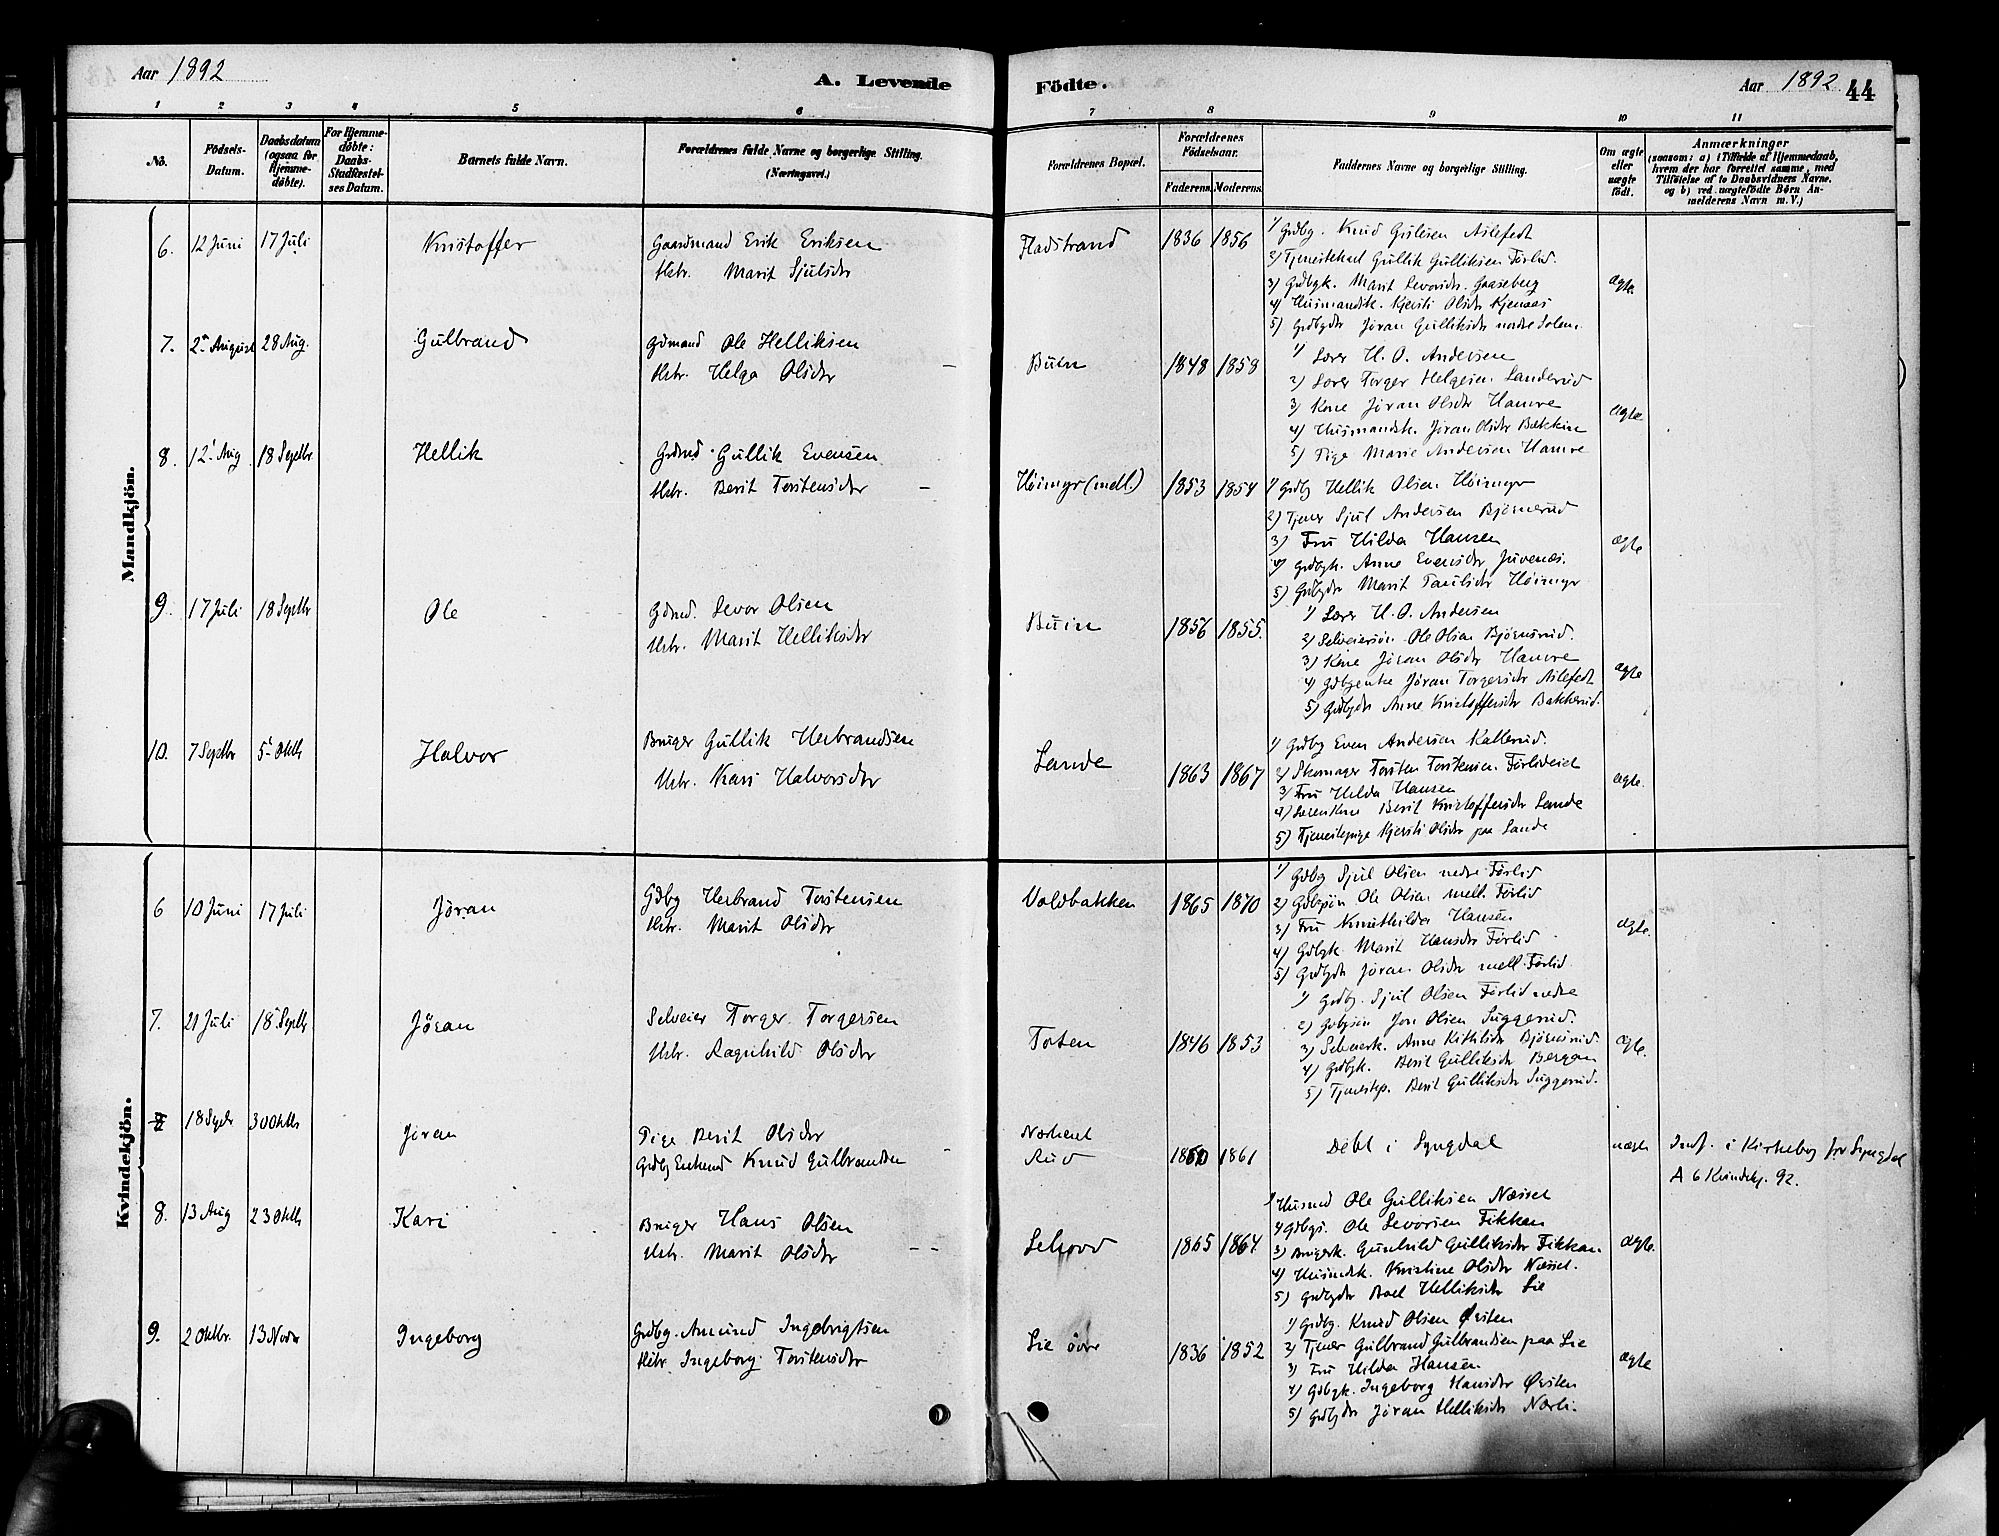 Aar 1892
A. Levende
Födte.
Aar 1892
44
1 2 3 4 5 6
7 8 9 10 11
No.
Födsels-Datum.
Daabsdatum (ogsaa for Hjemmedøbte).
For Hjemmedøbte: Daabs-Stadfæstelses Datum.
Barnets fulde Navn.
Forældrenes fulde Navne og borgerlige Stilling.
(Næringsvei.)
Forældrenes Bopæl.
Forældrenes Födselsaar.
Faderens.
Moderens.
Faddernes Navne og borgerlige Stilling.
Om ægte eller uægte født.
Anmærkninger
(saasom: a) i Tilfælde af Hjemmedaab, hvem der har forrettet samme, med Tilföielse af to Daabsvidners Navne, og b) ved uægtefödte Børn Anmelderens Navn m. V.)
Mandkjön.
6. 12 Juni 17 Juli Kristoffer Gaardmand Erik Eriksen
Hstr. Marit Sjulsdr
Fladstrand 1836 1856
1) Grdbg. Knud Gulesen Aslefedt
2) Tjenestekarl Gullik Gulliksen Förlid.
3) Grdbgk. Marit Levorsdr. Gaaseberg
4) Husmandsk. Kjersti Olsdr Kjenaas
5) Grdbgdtr Jöran Gulliksdr nordre Solem.
ægte.
7. 2n August 28 Aug. Gulbrand Gdmand Ole Helliksen
Hstr. Helga Olsdr
Buin 1848 1858
1) Lærer H. O. Andersen
2) Lærer Torger Helgesen Landerud
3) Kone Jöran Olsdtr Hamre
4) Husmandsk. Jöran Olsdtr Bakkin
5) Pige Marie Andersen Hamre
ægte
8. 12' Aug 18 Septbr Hellik Grdmd Gullik Evensen
Hstr. Berit Torstensdr
Höimyr (mell.) 1853 1854
1) Grdbg Hellik Olsen Höimyr
2) Tjener Sjul Andersen Björnerud
3) Fru Hilda Hansen
4) Grdbgk. Anne Evensdr Juvenæs.
5) Grdbgdtr Marit Paulsdr Höimyr
ægte
9. 17 Juli 18 Septbr Ole Gdmd. Levor Olsen
Hstr. Marit Helliksdtr
Buin 1856 1855.
1) Lærer H. O. Andersen
2) Selveiersön Ole Olsen Björnsrud.
3) Kone Jöran Olsdtr Hamre
4) Gdbgenke Jöran Torgersdr Aslefedt
5) Grdbgdtr Anne Kristoffersdr Bakkerud.
ægte
10. 7 Septbr 5' Oktb Halvor Bruger Gullik Herbrandsen
Hstr. Kari Halvorsdtr
Lande 1863 1867
1) Grdbg Even Andersen Kallerud.
2) Skomager Torsten Torstensen Förlideiet
3) Fru Hilda Hansen
4) Lærerkone Berit Kristoffersdr Lande
5) Tjenestepige Kjersti Olsdr paa Lande
ægte.
Kvindekjön.
6 10 Juni 17 Juli Jöran Gdbg Herbrand Torstensen
Hstr. Marit Olsdtr
Voldbakken 1865 1870
1) Gdbg Sjul Olsen nedre Förlid
2) Gdbgsön Ole Olsen mell. Förlid
3) Fru Knuthilda Hansen
4) Gdbgk. Marit Hansdtr Förlid
5) Grdbgdtr Jöran Olsdtr mell. Förlid
ægte.
7. 21 Juli 18 Septbr Jöran Selveier Torger Torgersen
Hstr. Ragnhild Olsdtr
Toten 1846 1853
1) Grdbg. Sjul Olsen Förlid nedre
2) Gdbgsön Jon Olsen Suggerud.
3) Selveierk. Anne Kittilsdr Björnsrud.
4) Grdbgk. Berit Gulliksdr Bergan
5) Tjenestep. Berit Gulliksdr Suggerud.
ægte.
18 Septr 30 Oktb Jöran Pige Berit Olsdtr
Grdbg Enkemd Knud Gulbrandsen
Rud 1850 1861
Döbt i Lyngdal
uægte
Indf. i Kirkebog for Lyngdal
A 6 Kvindekj. 92.
8. 13 Aug 23 Oktb Kari Bruger Hans Olsen
Hstr. Marit Olsdtr
1865 1864
1) Husmd Ole Gulliksen Næsset
2) Gdbgs. Ole Levorsen Fikkan
3) Brugerk. Gunhild Gulliksdtr Fikkan.
4) Husmdsk. Kristine Olsdtr Næsset.
5) Grdbgdtr Boel Helliksdr Lie
ægte.
9. 2 Oktbr. 13 Novbr Ingeborg Grdbg. Amund Ingebrigtsen
Hstr Ingeborg Torstensdtr
Lie övre 1836 1852
1) Grdbg. Knud Olsen Østen
2) Tjener Gulbrand Gulbrandsen paa Lie
3) Fru Hilda Hansen
4) Gdbgk. Ingeborg Hansdtr Østen
5) Grdbgdtr Jöran Helliksdtr Nærli.
ægte